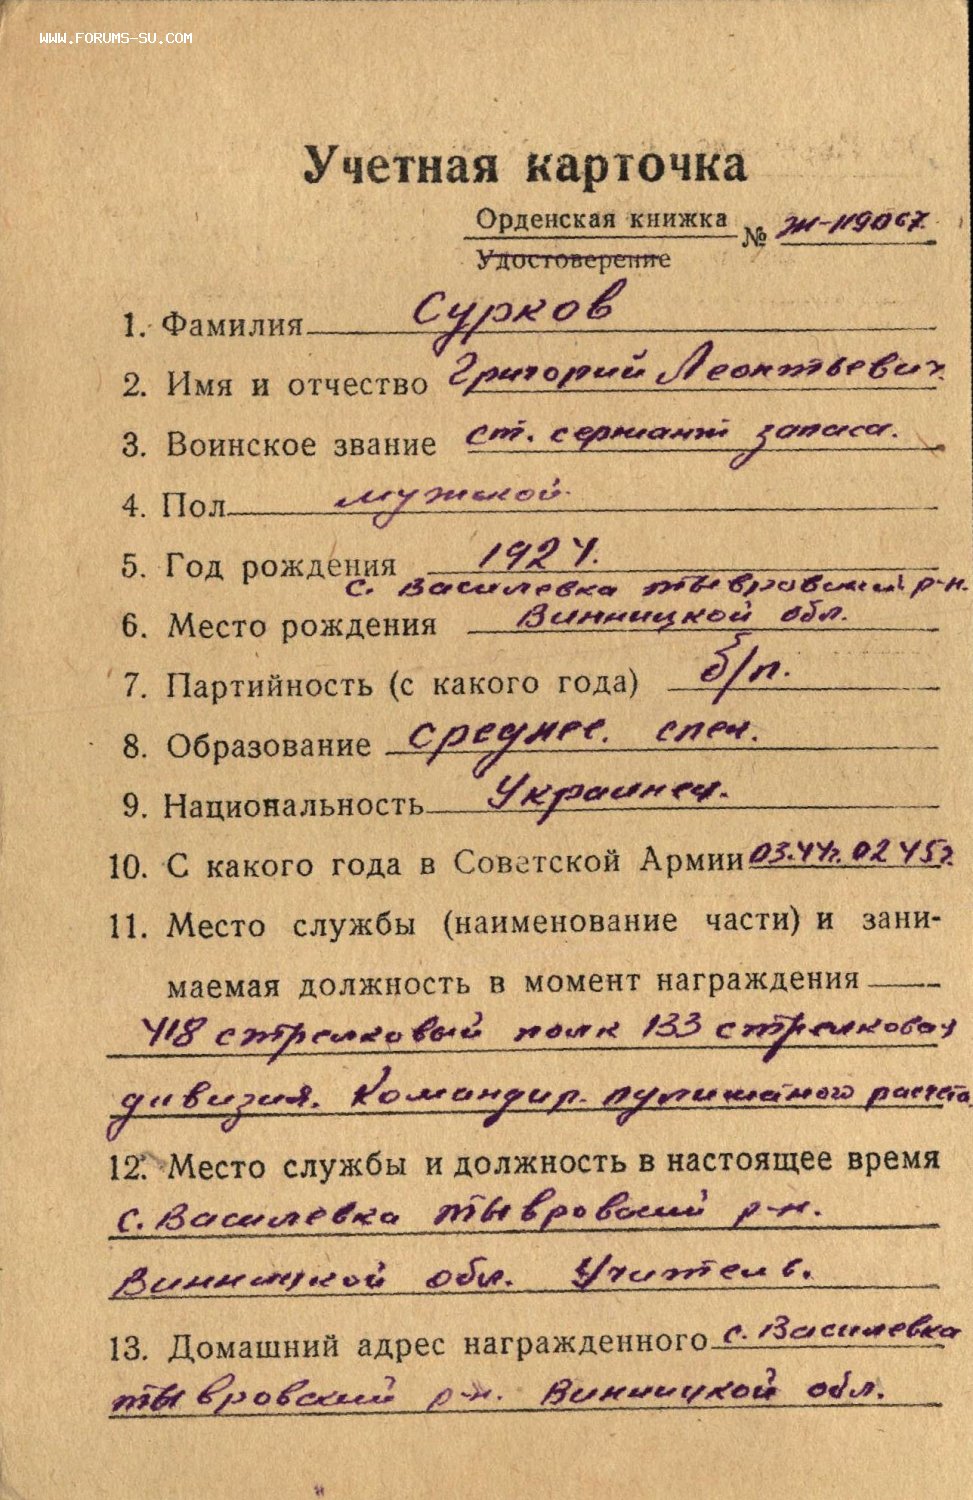 WWW.FORUMS-SU.COM
Учетная карточка
Орденская книжка
Удостоверение
№ Ж-119067
1. Фамилия Сурков
2. Имя и отчество Григорий Леонтьевич
3. Воинское звание ст. сержант запаса.
4. Пол мужской
5. Год рождения 1924.
с. Василевка Тывровский р-н.
6. Место рождения Винницкой обл.
7. Партийность (с какого года) б/п.
8. Образование среднее. спец.
9. Национальность Украинец.
10. С какого года в Советской Армии 03.44г. 02 45г
11. Место службы (наименование части) и зани-
маемая должность в момент награждения
418 стрелковый полк 133 стрелковая
дивизия. Командир. пулиматного расчета
12. Место службы и должность в настоящее время
с. Василевка Тывровский р-н.
Винницкой обл. Учитель.
13. Домашний адрес награжденного с. Василевка
Тывровский р-н. Винницкой обл.